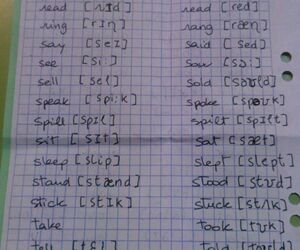 read [rɪd] read [red]
ring [rɪŋ] rang [ræŋ]
say [seɪ] said [sed]
see [si:] saw [sɔ:]
sell [sel] sold [səʊld]
speak [spi:k] spoke [spəʊk]
spill [spɪl] spilt [spɪlt]
sit [sɪt] sat [sæt]
sleep [slip] slept [slept]
stand [stænd] stood [stʊd]
stick [stɪk] stuck [stʌk]
take took [tʊk]
tell told